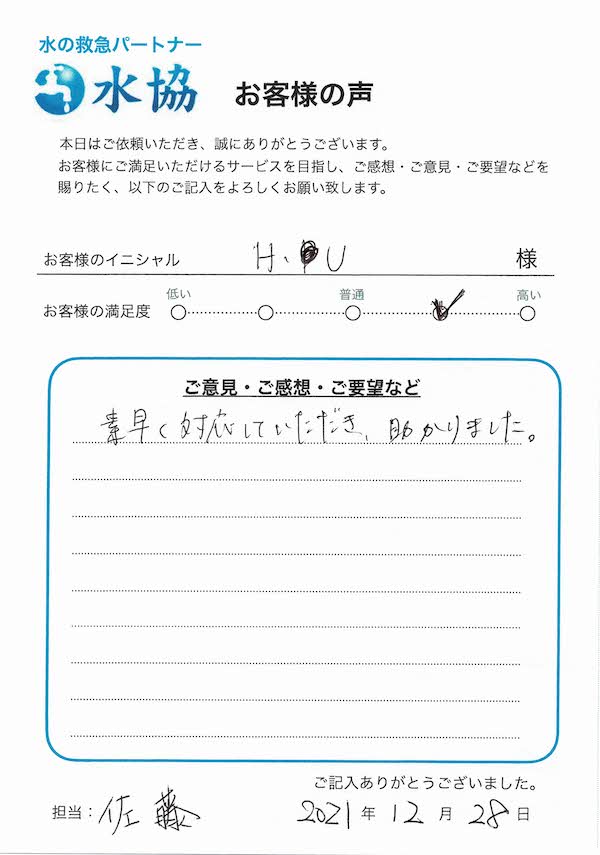 水の救急パートナー
水協 お客様の声
本日はご依頼いただき、誠にありがとうございます。
お客様にご満足いただけるサービスを目指し、ご感想・ご意見・ご要望などを
賜りたく、以下のご記入をよろしくお願い致します。
お客様のイニシャル H.U 様
低い 普通 高い
お客様の満足度
ご意見・ご感想・ご要望など
素早く対応していただき、助かりました。
ご記入ありがとうございました。
担当：佐藤 2021年12月28日